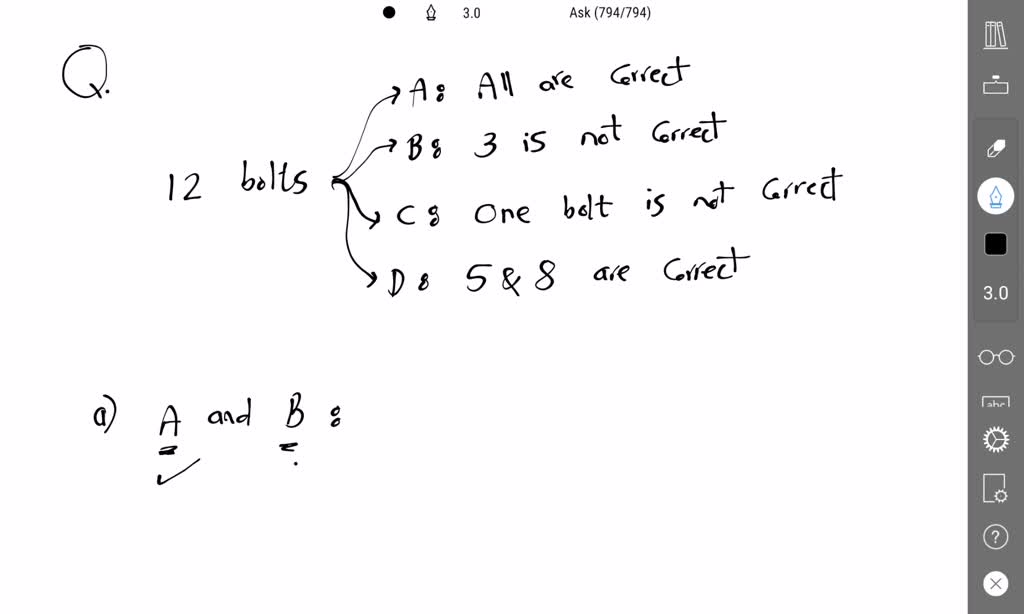 3.0 Ask (794/794)
Q.
A: All are correct
B: 3 is not correct
12 bolts
C: One bolt is not correct
D: 5 & 8 are correct
3.0
abc
a) A and B :
?